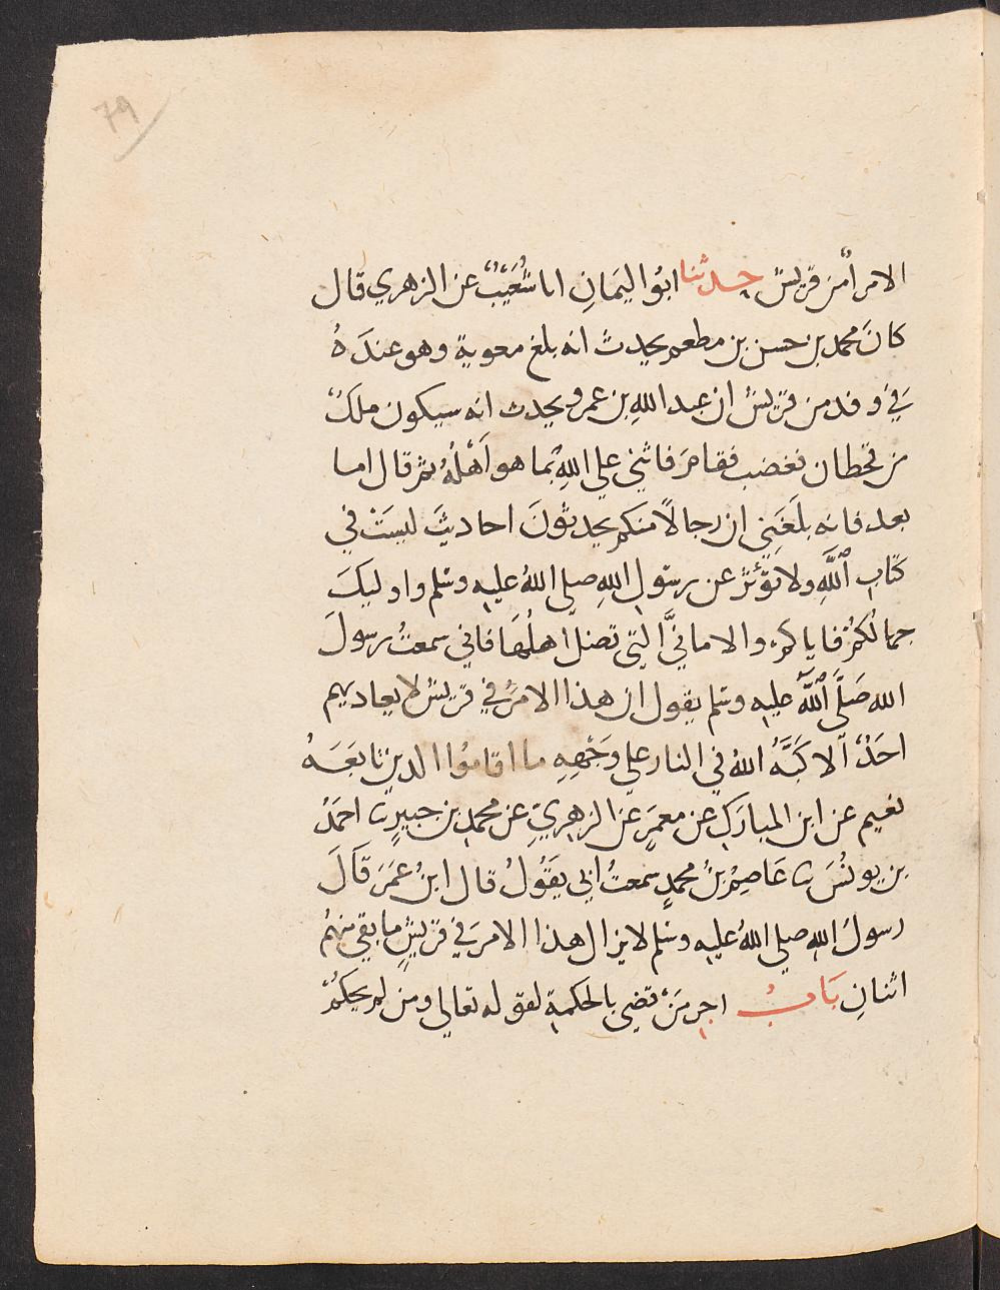 79
الامرأمن قريش حدثنا ابوا اليمان انا شعيب عن الزهري قال
كان محمد بن حسن بن مطعم يحدث انه بلغ معوية وهو عنده
في وفد من قريش ان عبد الله بن عمرو يحدث انه سيكون ملك
من قحطان فغضب فقام فاثنى على الله بما هو اهله ثم قال اما
بعد فانه بلغني ان رجالا منكم يحدثون احاديث ليست في
كتاب الله ولا تؤثر عن رسول الله صلى الله عليه وسلم واوليك
جهالكم فاياكم والاماني التي تضل اهلها فاني سمعت رسول
الله صلى الله عليه وسلم يقول ان هذا الامر في قريش لا يعاديهم
احد الا كبه الله في النار على وجهه ما اقاموا الدين تابعه
نعيم عن ابن المبارك عن معمر عن الزهري عن محمد بن جبير ثنا احمد
بن يونس ثنا عاصم بن محمد سمعت ابي يقول قال ابن عمر قال
رسول الله صلى الله عليه وسلم لا يزال هذا الامر في قريش ما بقي منهم
اثنان باب اجر من قضى بالحكمة لقوله تعالى ومن لم يحكم